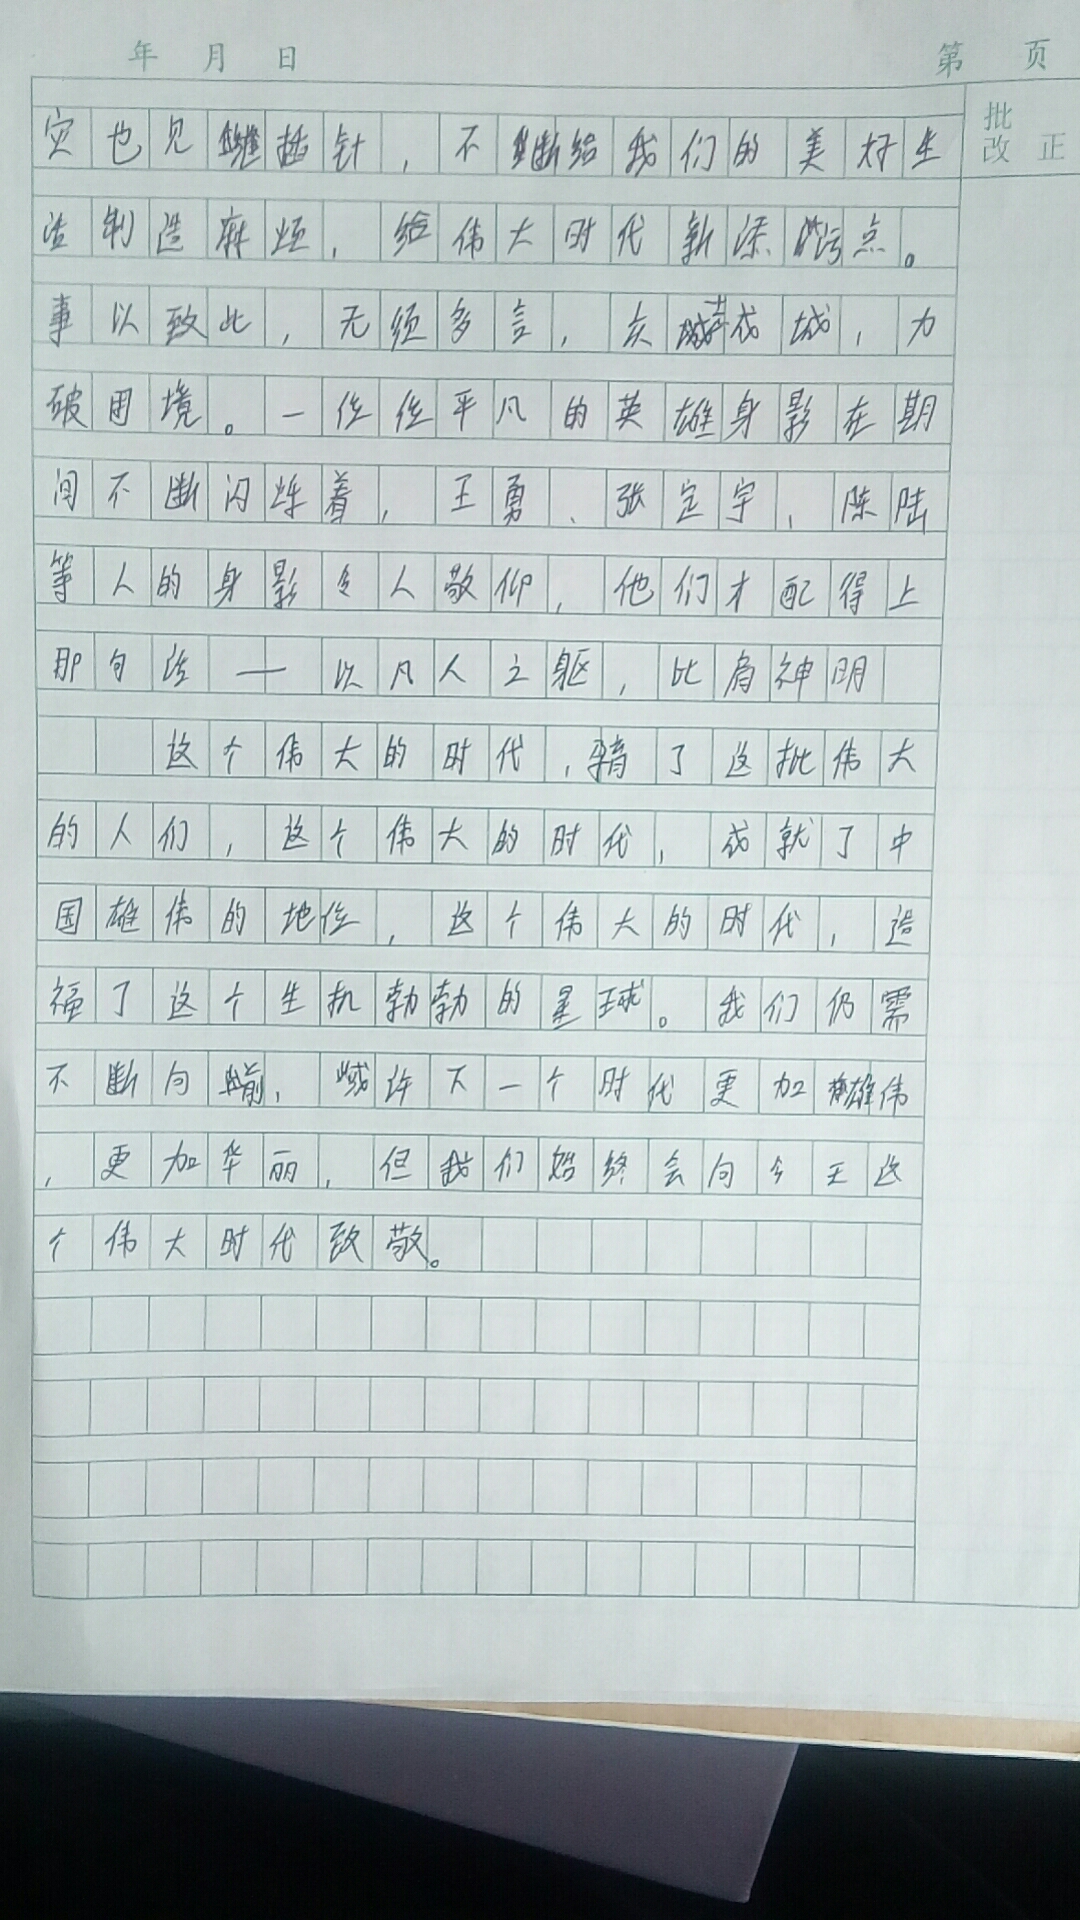 年 月 日 第 页
批改 正
灾也见缝插针，不断给我们的美好生
活制造麻烦，给伟大时代新添污点。
事以致此，无须多言，众志成城，力
破困境。一位位平凡的英雄身影在期
间不断闪烁着，王勇、张定宇、陈陆
等人的身影令人敬仰，他们才配得上
那句话——以凡人之躯，比肩神明
这个伟大的时代，孕育了这批伟大
的人们，这个伟大的时代，成就了中
国雄伟的地位，这个伟大的时代，造
福了这个生机勃勃的星球。我们仍需
不断向前，或许下一个时代更加雄伟
，更加华丽，但我们始终会向今天这
个伟大时代致敬。